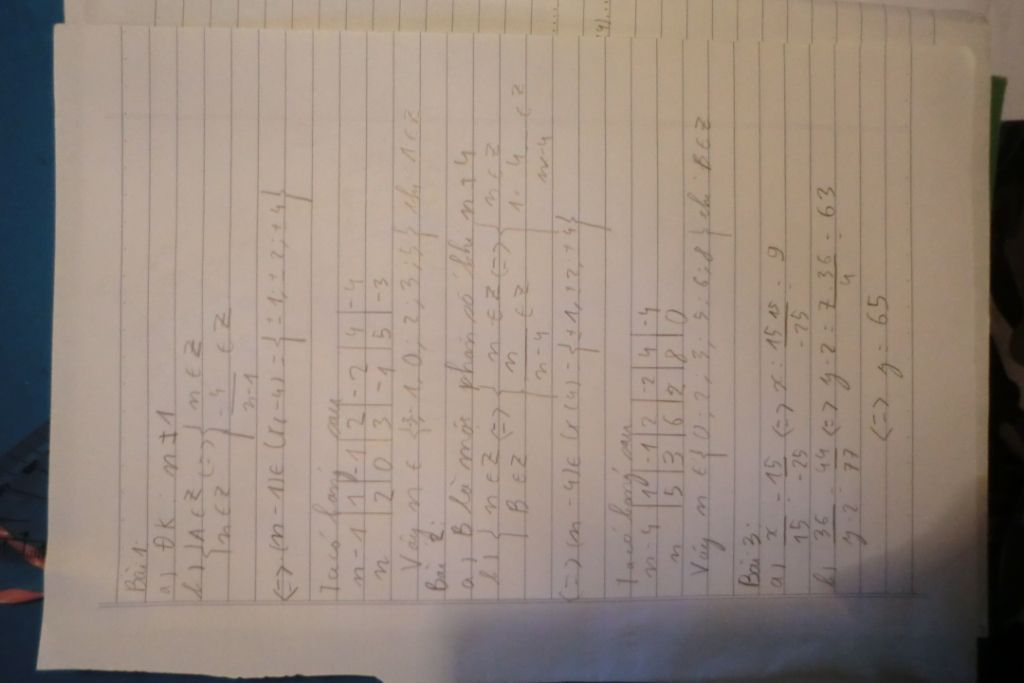 Bài 1:
a) ĐK n ≠ 1
b) { A ∈ Z (=) { n ∈ Z
{ n ∈ Z { -4/n-1 ∈ Z
(=) (n-1) ∈ Ư(-4) = { ±1, ±2; ±4 }
Ta có bảng sau
n-1 | 1 | -1 | 2 | -2 | 4 | -4
n | 2 | 0 | 3 | -1 | 5 | -3
Vậy n ∈ {-3; -1, 0; 2, 3, 5}
Bài 2:
a) B là một phân số khi n ≠ 4
b) { n ∈ Z (=) { n ∈ Z (=) { n ∈ Z
{ B ∈ Z { n/n-4 ∈ Z { 1+ 4/n-4 ∈ Z
(=) (n-4) ∈ Ư(4) = { ±1, ±2, ±4 }
Ta có bảng sau
n-4 | 1 | -1 | 2 | -2 | 4 | -4
n | 5 | 3 | 6 | 2 | 8 | 0
Vậy n ∈ { 0; 2, 3; 5; 6; 8 } khi B ∈ Z
Bài 3:
a) x/15 = -15/-25 (=) x = 15.15/-25 = 9
b) 36/y-2 = 44/77 (=) y-2 = 7.36/4 = 63
(=) y = 65